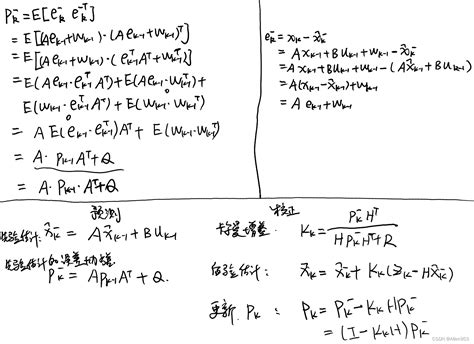 P_k^- = E[e_k^- e_k^-T]
= E[(Ae_k-1+w_k-1)·(Ae_k-1+w_k-1)^T]
= E[(Ae_k-1+w_k-1)·(e_k-1^T A^T+w_k-1^T)]
= E(Ae_k-1·e_k-1^T A^T)+E(Ae_k-1·w_k-1^T)+
E(w_k-1·e_k-1^T A^T)+E(w_k-1·w_k-1^T)
= A E(e_k-1·e_k-1^T)A^T + E(w_k-1·w_k-1^T)
= A·P_k-1 A^T+Q
= A·P_k-1·A^T+Q
e_k^- = x_k - x̂_k^-
= A x_k-1+B u_k-1+w_k-1 - x̂_k^-
= A x_k-1+B u_k-1+w_k-1-(A x̂_k-1+B u_k-1)
= A(x_k-1-x̂_k-1)+w_k-1
= A e_k-1+w_k-1
预测
先验估计: x̂_k^- = A x̂_k-1+B u_k-1
先验估计的误差协方差
P_k^- = A P_k-1 A^T + Q.
校正
卡尔曼增益: K_k = P_k^- H^T / (H P_k^- H^T+R)
后验估计: x̂_k = x̂_k^- + K_k(Z_k-H x̂_k^-)
更新 P_k: P_k = P_k^- - K_k H P_k^-
= (I-K_k H)P_k^-